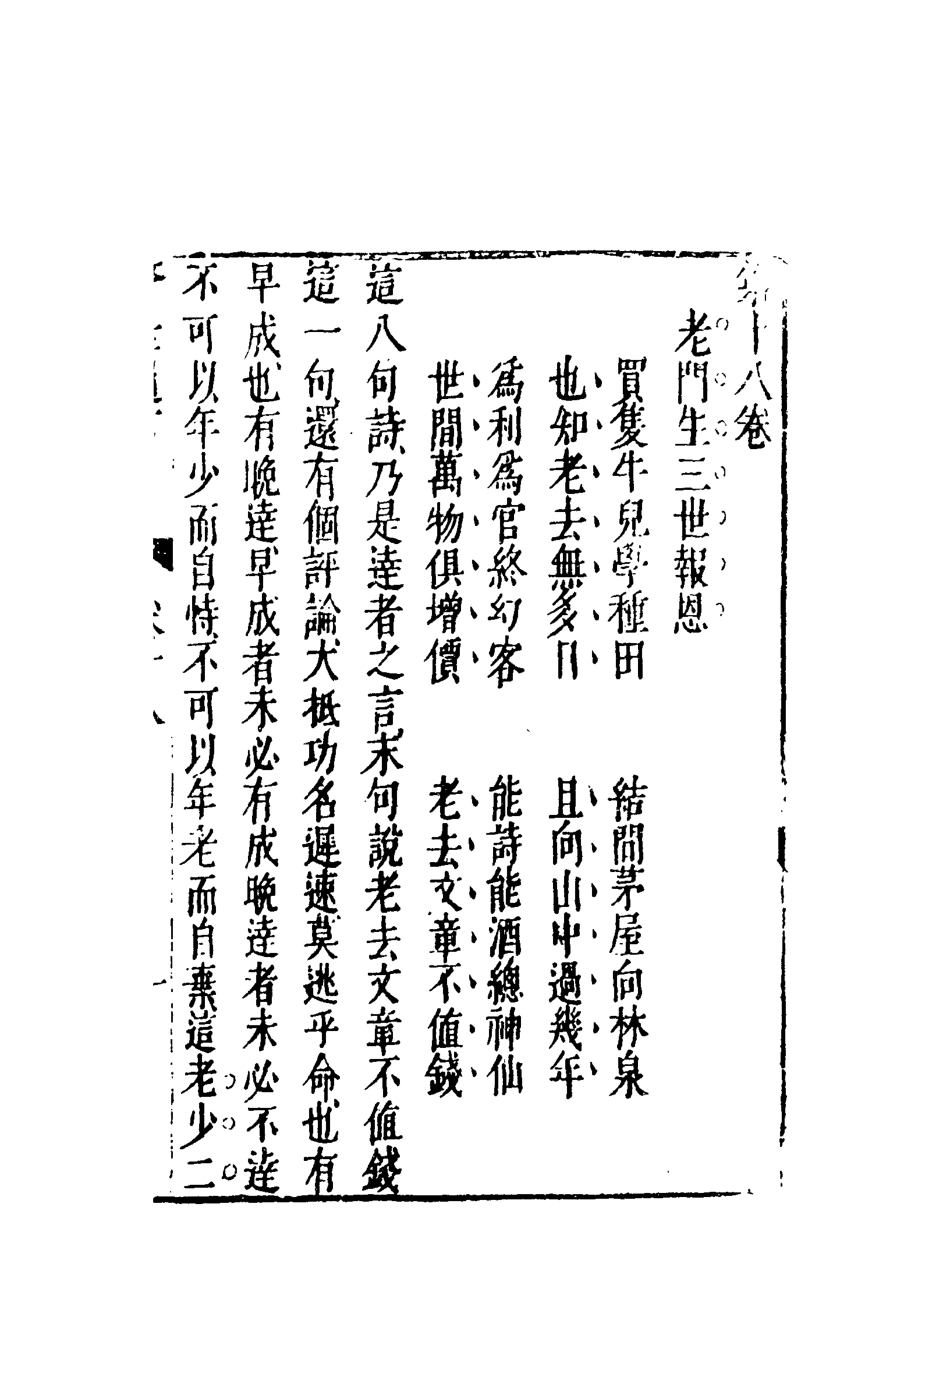 第十八卷
老門生三世報恩
買隻牛兒學種田　結間茅屋向林泉
也知老去無多日　且向山中過幾年
爲利爲官終幻客　能詩能酒總神仙
世間萬物俱增價　老去文章不值錢
這八句詩、乃是達者之言、末句說老去文章不値錢
這一句、還有個評論、大抵功名遲速、莫逃乎命、也有
早成、也有晚達、早成者未必有成、晚達者未必不達
不可以年少而自恃、不可以年老而自棄、這老少二